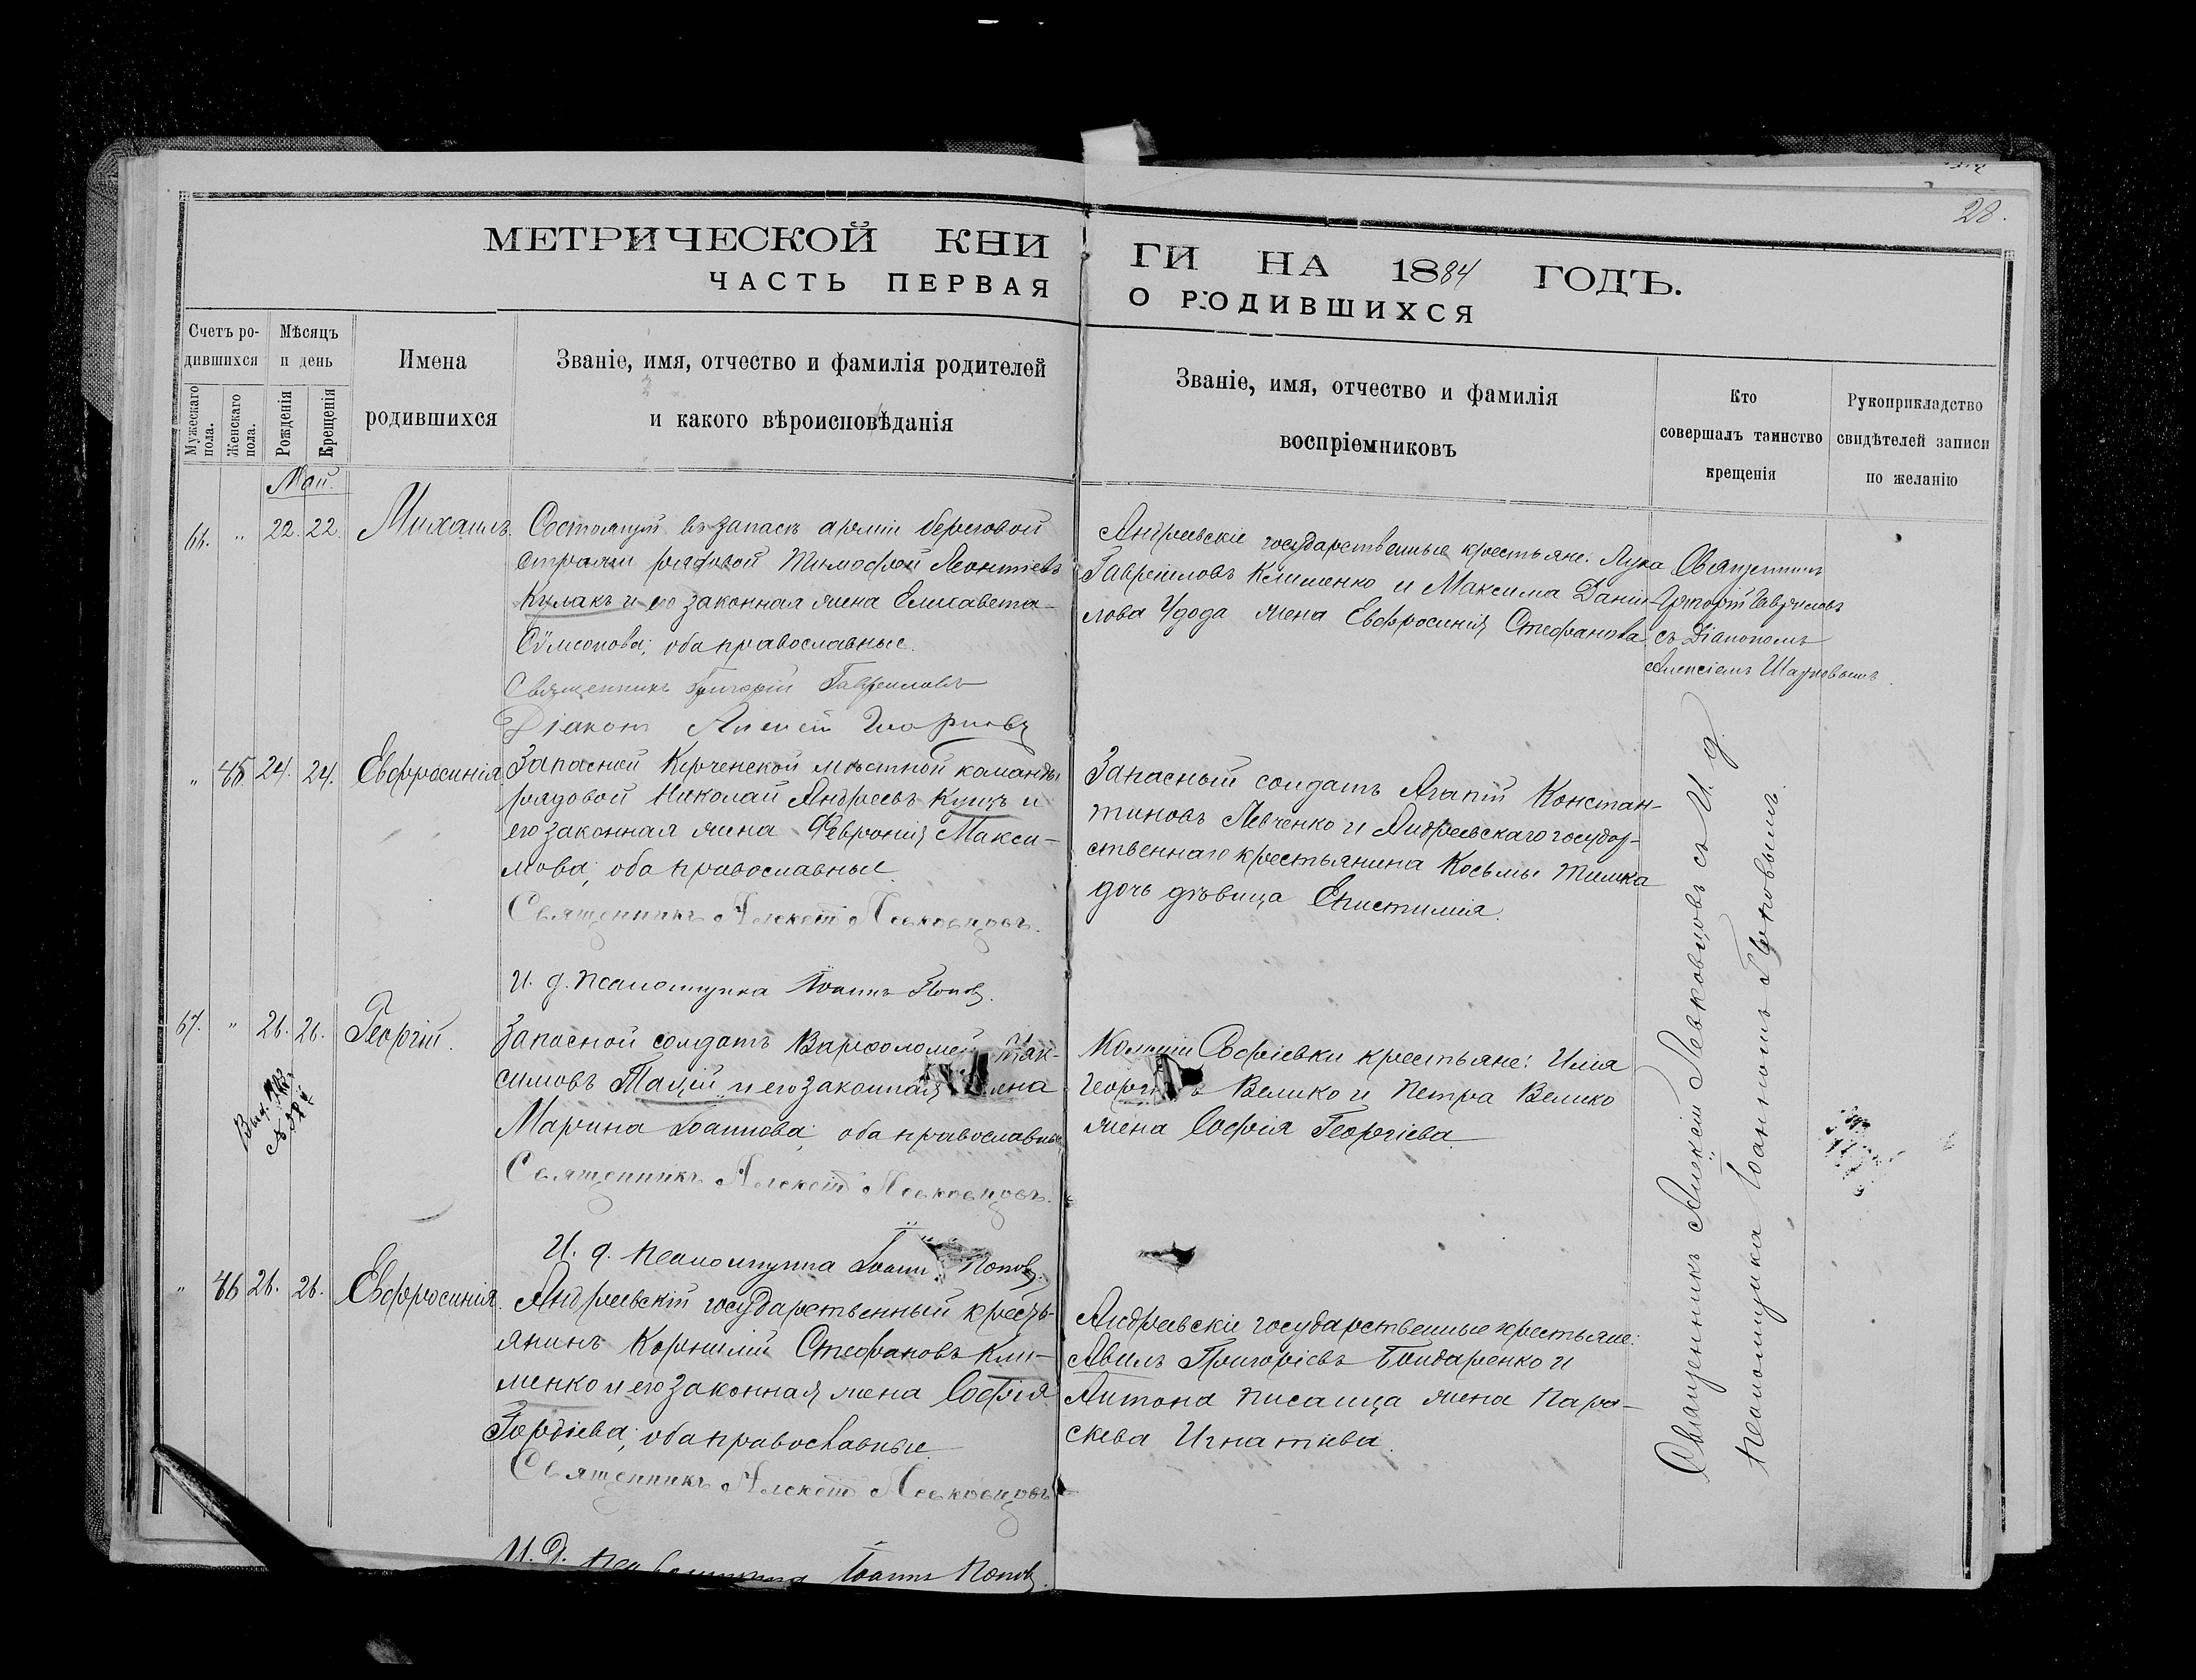 28.
МЕТРИЧЕСКОЙ КНИ
ГИ НА 1884 ГОДЪ.
ЧАСТЬ ПЕРВАЯ
О РОДИВШИХСЯ
Счетъ ро-
дившихся
Мужескаго пола.
Женскаго пола.
Мѣсяцъ
и день
Рожденія
Крещенія
Имена
родившихся
Званіе, имя, отчество и фамилія родителей
и какого вѣроисповѣданія
Званіе, имя, отчество и фамилія
воспріемниковъ
Кто
совершалъ таинство
крещенія
Рукоприкладство
свидѣтелей записи
по желанію
Май.
66. " 22. 22. Михаилъ.
Состоящій въ запасѣ арміи береговой
стражи рядовой Тимофей Леонтіевъ
Кулакъ и его законная жена Елисавета
Сѵмсонова; оба православные.
Священникъ Григорій Гавриловъ
Діаконъ Алексій
Андреевскіе государственные крестьяне: Лука
Гавріиловъ Клименко и Максима Даніи-
лова Удода жена Евфросинія Стефанова.
Священникъ
Григорій Гавриловъ
съ Діакономъ
Алексіемъ
" 45. 24. 24. Евфросинія.
Запасной Керченской мѣстной команды
рядовой Николай Андреевъ Куцъ и
его законная жена Феврония Макси-
мова; оба православные.
Священникъ Алексій Левковцовъ.
И. д. псаломщика Іоаннъ Поповъ.
Запасный солдатъ Агапій Констан-
тиновъ Левченко и Андреевскаго государ-
ственнаго крестьянина Косьмы Тимка
дочь дѣвица Епистимія.
67. " 26. 26. Георгій.
Запасной солдатъ Варфоломей Мак-
симовъ и его законная жена
Марина Іоаннова; оба православные
Священникъ Алексій Левковцовъ.
И. д. псаломщика Іоаннъ Поповъ.
Софіевки крестьяне: Илія
Георгіевъ Велико и Петра Велико
жена Софія Георгіева.
" 46 26. 26. Евфросинія.
Андреевскій государственный кресть-
янинъ Корнилій Стефановъ Кли-
менко и его законная жена Софія
Гордіева; оба православные.
Священникъ Алексій Левковцовъ
И. д. псаломщика Іоаннъ Поповъ.
Андреевскіе государственные крестьяне:
Авилъ Григоріевъ Бондаренко и
Антона Писанца жена Пара-
скева Игнатіева.
Священникъ Алексій Левковцовъ съ И. д.
псаломщика Іоанномъ Поповымъ.